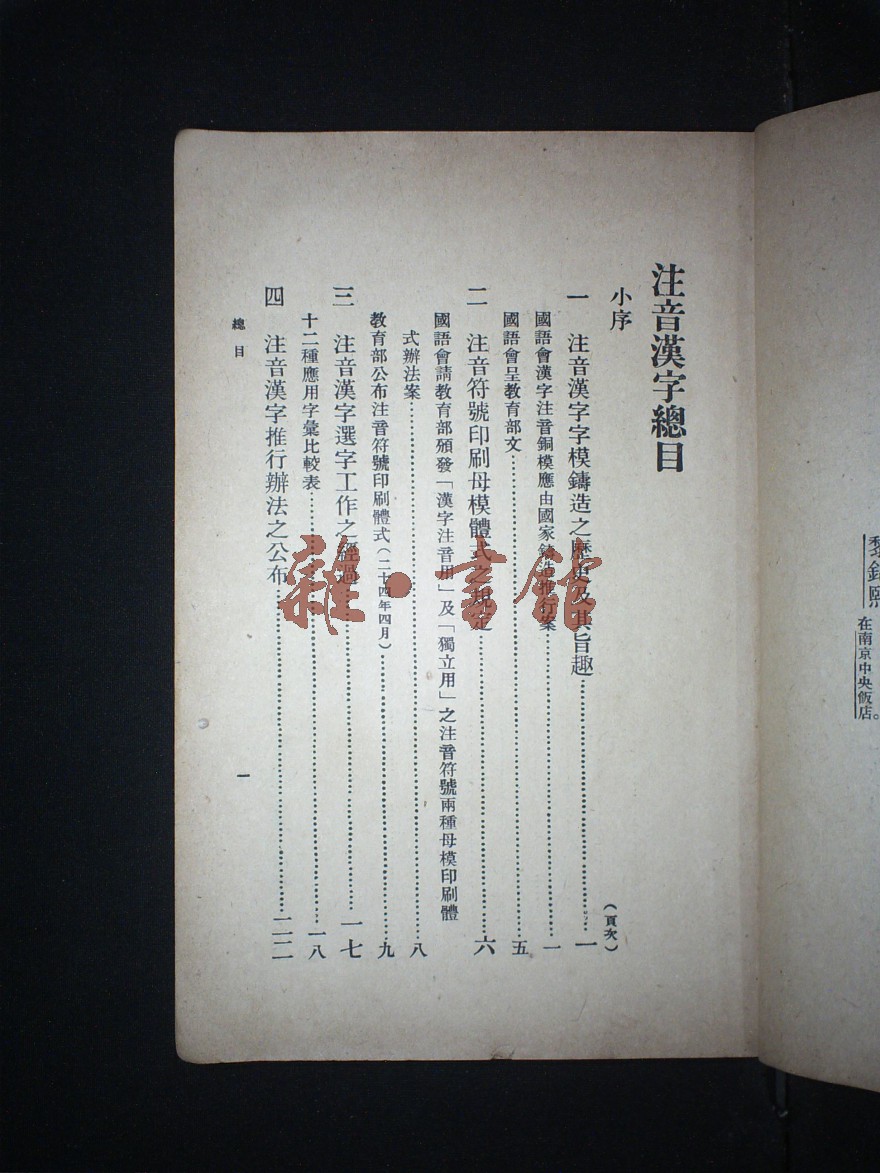 黎錦熙
在南京中央飯店。
注音漢字總目
（頁次）
小序
一 注音漢字字模鑄造之歷史及其旨趣……一
國語會漢字注音銅模應由國家鑄造推行案……一
國語會呈教育部文……五
二 注音符號印刷母模體式之規定……六
國語會請教育部頒發「漢字注音用」及「獨立用」之注音符號兩種母模印刷體
式辦法案……八
教育部公布注音符號印刷體式(二十四年四月)……九
三 注音漢字選字工作之經過……一七
十二種應用字彙比較表……一八
四 注音漢字推行辦法之公布……二二
總目
一
雜·書館